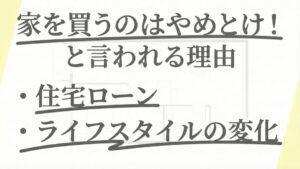 家を買うのはやめとけ！
と言われる理由
・住宅ローン
・ライフスタイルの変化